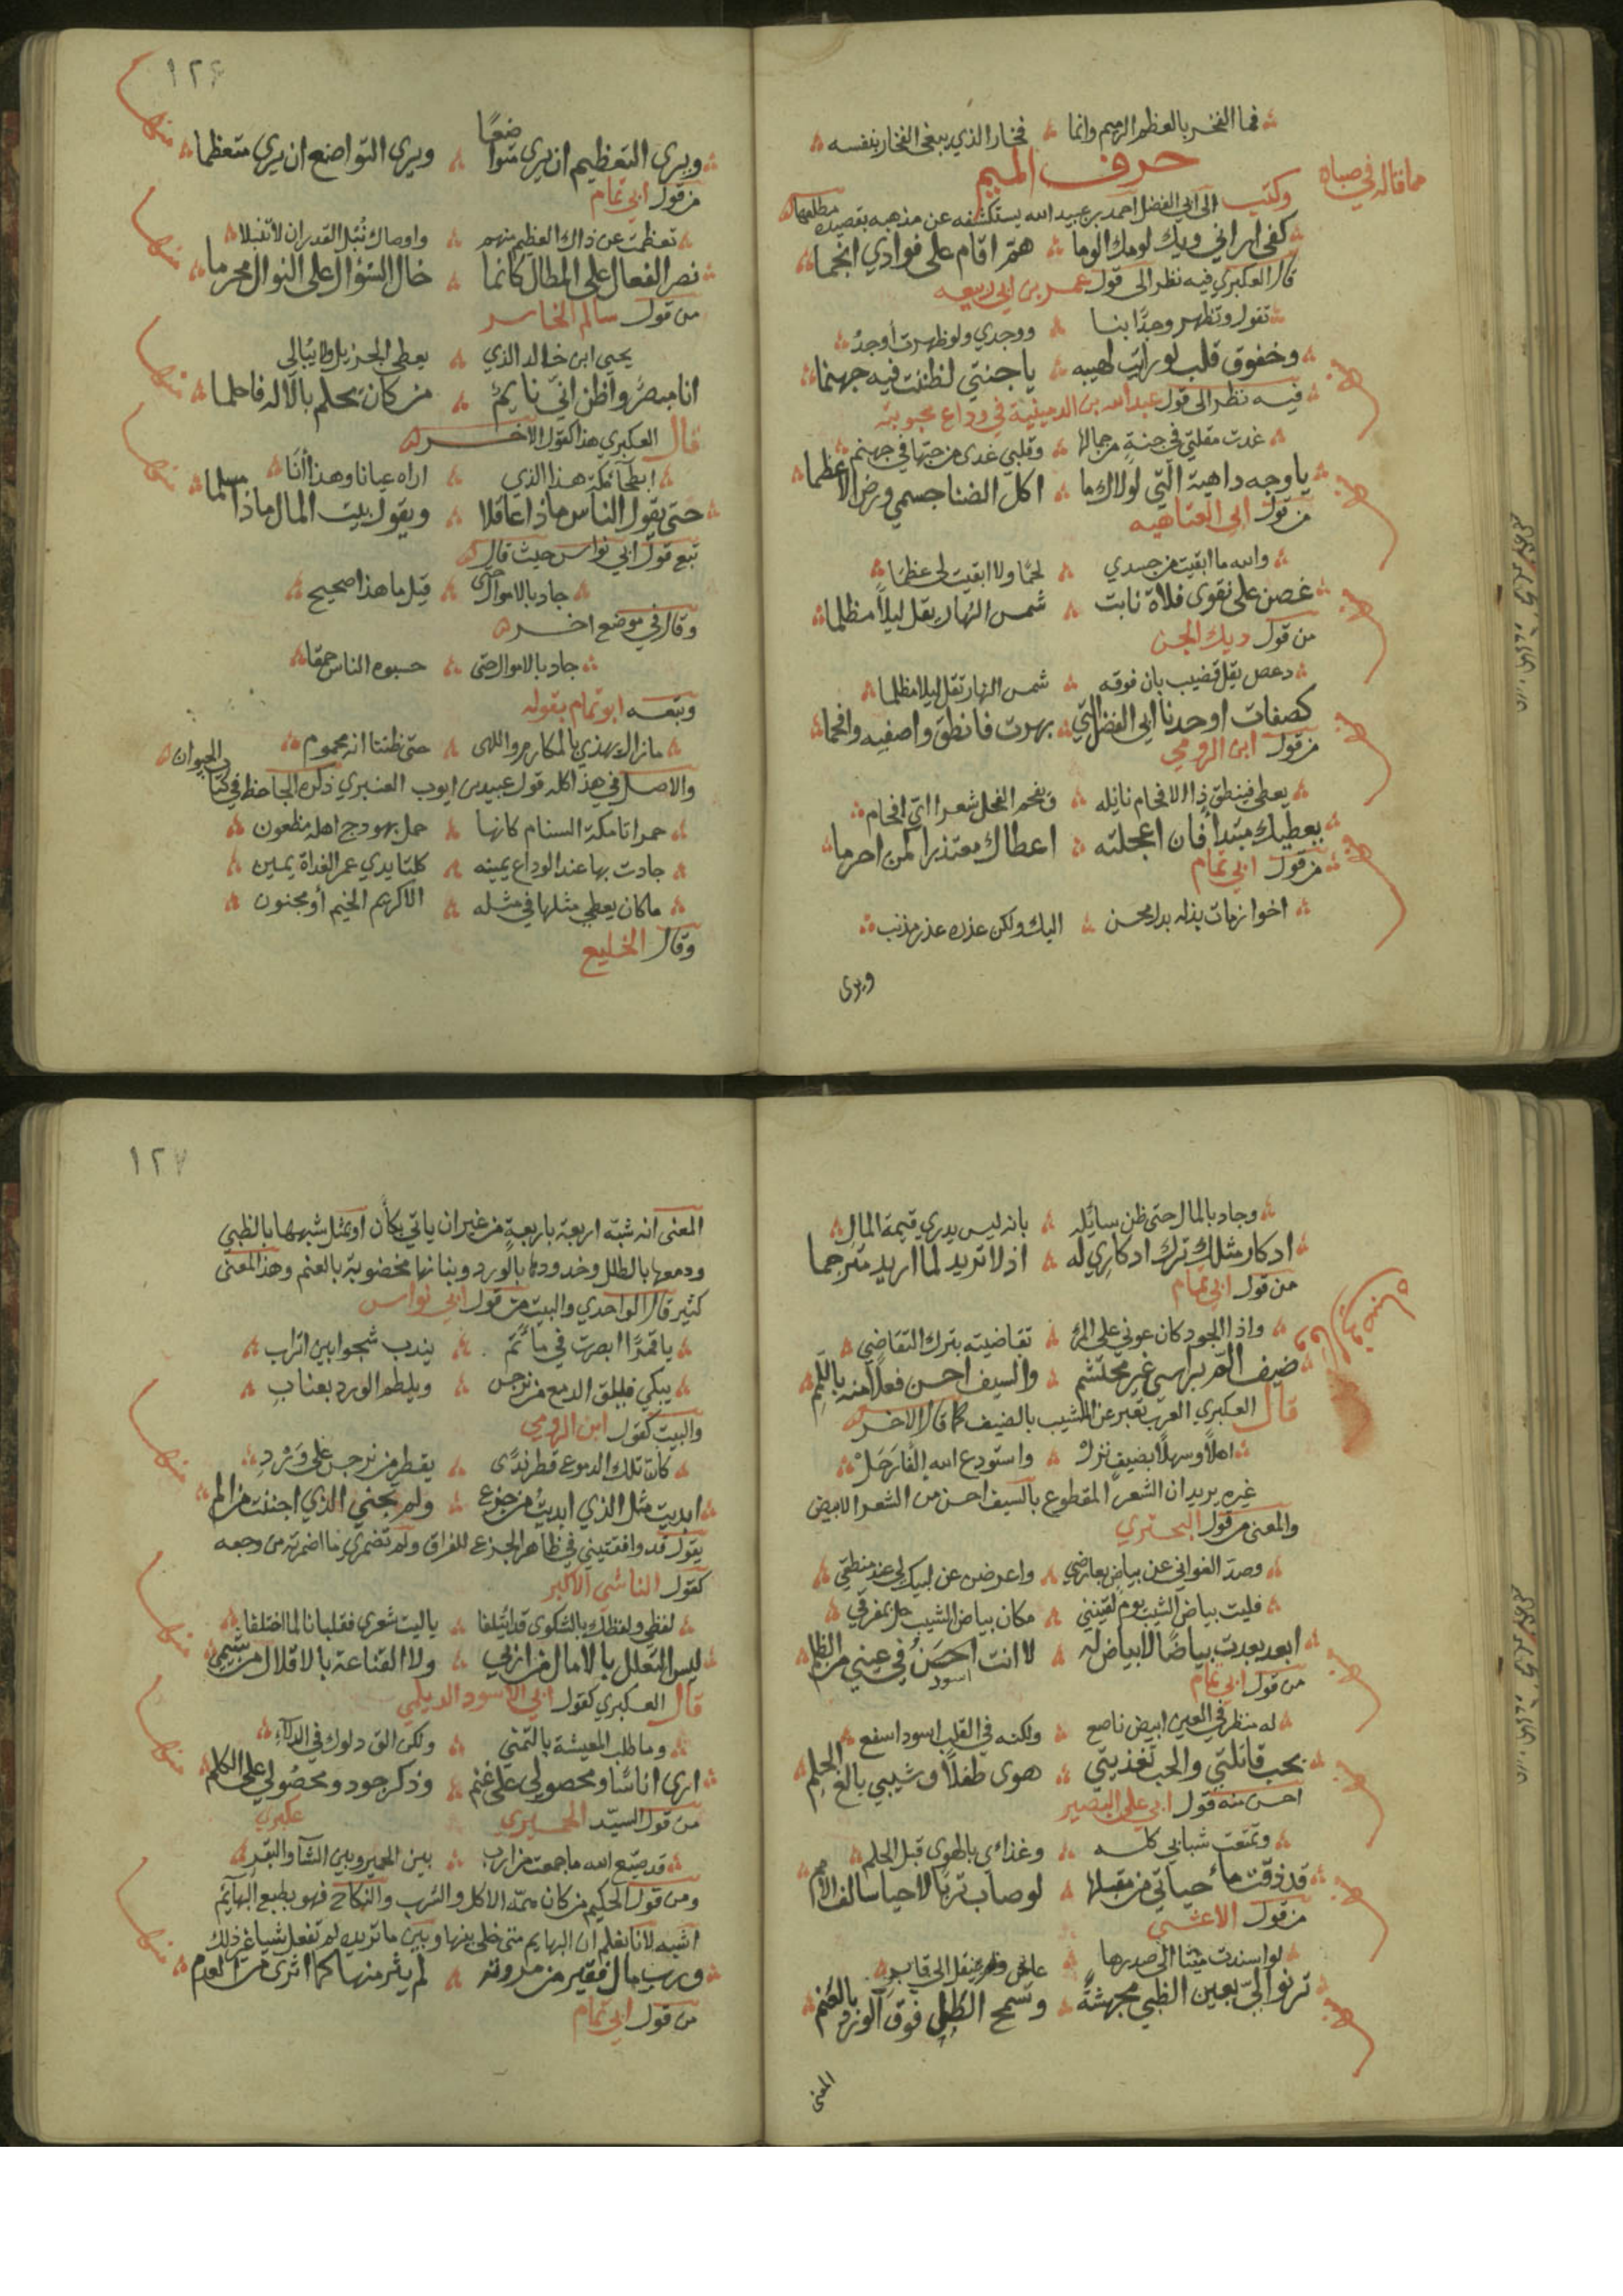 فما الفخر بالعظم الرميم وانما فخار الذي يبغي الفخار بنفسه
حرف الميم
مما قاله في صباه
وكتب الى ابي الفضل احمد بن عبيد الله يستكشفه عن مذهبه بقصيدة مطلعها
كفي اراني ويك لومك الوما همّ اقام على فوادي انجما
قال العكبري فيه نظر الى قول عمر بن ابي ربيعه
تقول وتظهر وجدًا بنا ووجدي ولو ظهرت أوجدُ
وخفوق قلب لو رايت لهيبه يا جنتي لظننت فيه جهنما
فيه نظر الى قول عبد الله بن الدمينة في وداع محبوبته
غدت مقلتي في جنةٍ من جمالها وقلبي غدى من حبها في جهنم
يا وجه داهية الّتي لولاك ما اكل الضنا جسمي ورض الاعظما
من قول ابي العتاهيه
والله ما ابقيت من جسدي لحمًا ولا ابقيت لي عظمًا
غصن على نقوى فلاة نابت شمس النهار يقل ليلاً مظلما
من قول ديك الجن
دعص يقل قضيب بان فوقه شمس النهار تقل ليلا مظلما
كصفات اوحدنا ابي الفضل التي بهرت فانطق واصفيه وافحما
من قول ابن الرومي
يعطي فينطق ذا الافحام نايله ويفحم الفحل شعرا ايّ افحام
يعطيك مبتداً فان اعجلته اعطاك معتذرا كمن احرما
من قول ابي تمام
اخو ازمات بذله بدل محسن اليك ولكن عذره عذر مذنب
ويرى
١٢٦
ويرى التعظيم ان يرى متواضعًا ويرى التواضع ان يرى متعظما
من قول ابي تمام
تعظمت عن ذاك العظيم منهم واوصاك نُبْل القدر ان لا تنبلا
نصر الفعال على المطال كانما خال السّؤال على النوال محرما
من قول سالم الخاسر
يحيى ابن خالد الذي يعطي الجزيل ولا يُبالي
انا مبصرٌ واظن انّي نايمٌ من كان يحلم بالاله فاحلما
قال العكبري هذا كقول الاخر
ابطحآء مكة هذا الذي اراه عيانا وهذا أنا
حتى يقول الناس ماذا عاقلا ويقول بيت المال ماذا مسلما
تبع قول ابي نواس حيث قال
جاد بالاموال حتى قيل ما هذا صحيح
وقال في موضع اخر
جاد بالاموال حتى حسبوه الناس حمقا
وتبعه ابو تمام بقوله
ما زال يهذي بالمكارم واللهى حتى ظننا انه محموم
والاصل في هذا كله قول عبيد بن ايوب العنبري ذكره الجاحظ في كتاب الحيوان
حمرا تامكة السنام كانها حمل بهودج اهله مظعون
جادت بها عند الوداع يمينه كلتا يدي عمر الغداة يمين
ما كان يعطي مثلها في مثله الا كريم الخيم أو مجنون
وقال الخليع
وجاد بالمال حتى ظن سائله بانه ليس يدري قيمة المال
ادكار مثلك ترك ادكاري له اذ لا تريد لما اريد مترجما
من قول ابي تمام
واذا الجود كان عوني على المرء تقاضيته بترك التقاضي
ضيف الم براسي غير محتشم والسيف احسن فعلاً منه باللّمم
قال العكبري العرب تعبر عن المشيب بالضيف كما قال الاخر
اهلاً وسهلاً بضيفٍ نزلْ واستودع الله إلفًا رَحَلْ
غيره يريد ان الشعر المقطوع بالسيف احسن من الشعر الابيض
والمعنى من قول البحتري
وصدّ الغواني عن بياض بعارضي واعرضن عن لبيك لي عند منطقي
فليت بياض الشيب يوم لقينني مكان بياض الشيب حل بمفرقي
ابعد بعدت بياضًا لا بياض له لا انت احسَنُ في عيني من الظلم
اسود
من قول ابي تمام
له منظر في العين ابيض ناصع ولكنه في القلب اسود اسفع
بحب قاتلتي والحب تغذيتي هوى طفلاً وشيبي بالغ الحلم
احسن منه قول ابي علي البصير
وتمتعت شبابي كله وغذائي بالهوى قبل الحلم
قد ذقت ماء حياتي من مقبلها لو صاب تربًا لاحيا سالف الامم
من قول الاعشى
لو اسندت ميتا الى صدرها عاش ولم ينقل الى قابر
ترنو اليّ بعين الظبي مجهشةً وتسمح الطل فوق الورد بالعنم
المعنى
١٢٧
المعنى انه شبّه اربعة باربعةٍ من غير ان ياتي بكأن او بمثل شبهها بالظبي
ودمعها بالطلل وخدودها بالورد وبنانها مخضوبة بالعنم وهذا المعنى
كثير قال الواحدي والبيت من قول ابي نواس
يا قمرًا ابصرت في مأتم يندب شجوا بين اتراب
يبكي فيلقى الدمع من نرجس ويلطم الورد بعناب
والبيت كقول ابن الرومي
كأن تلك الدموع قطر ندًى يقطر من نرجس على وَرْدِ
ابديتِ مثل الذي ابديتُ من جزع ولم تجني الذي اجننت من الم
يقول قد وافقتيني في ظاهر الجزع للفراق ولم تضمري ما اضمرته من وجعه
كقول الناشي الاكبر
لفظي ولفظك بالشكوى قد ائتلفا يا ليت شعري فقلبانا لما اختلفا
ليس التعلل بالامال من اربي ولا القناعة بالاقلال من شيمي
قال العكبري كقول ابي الاسود الديلي
وما طلب المعيشة بالتمني ولكن الق دلوك في الدلآء
ارى اناسًا ومحصولي على غنم وذكر جود ومحصولي على الكلم
من قول السيّد الحميري
عكبري
قد ضيّع الله ما جمعت من ارب بين الحمير وبين الشآ والبقر
ومن قول الحكيم من كان همّه الاكل والشرب والنكاح فهو بطبع البهآئم
اشبه لانا نعلم ان البهايم متى خلي بينها وبين ما تريد لم تفعل شيا غير ذلك
ورب مال فقير من مروته لم يثر منها كما اثرى من العدم
من قول ابي تمام